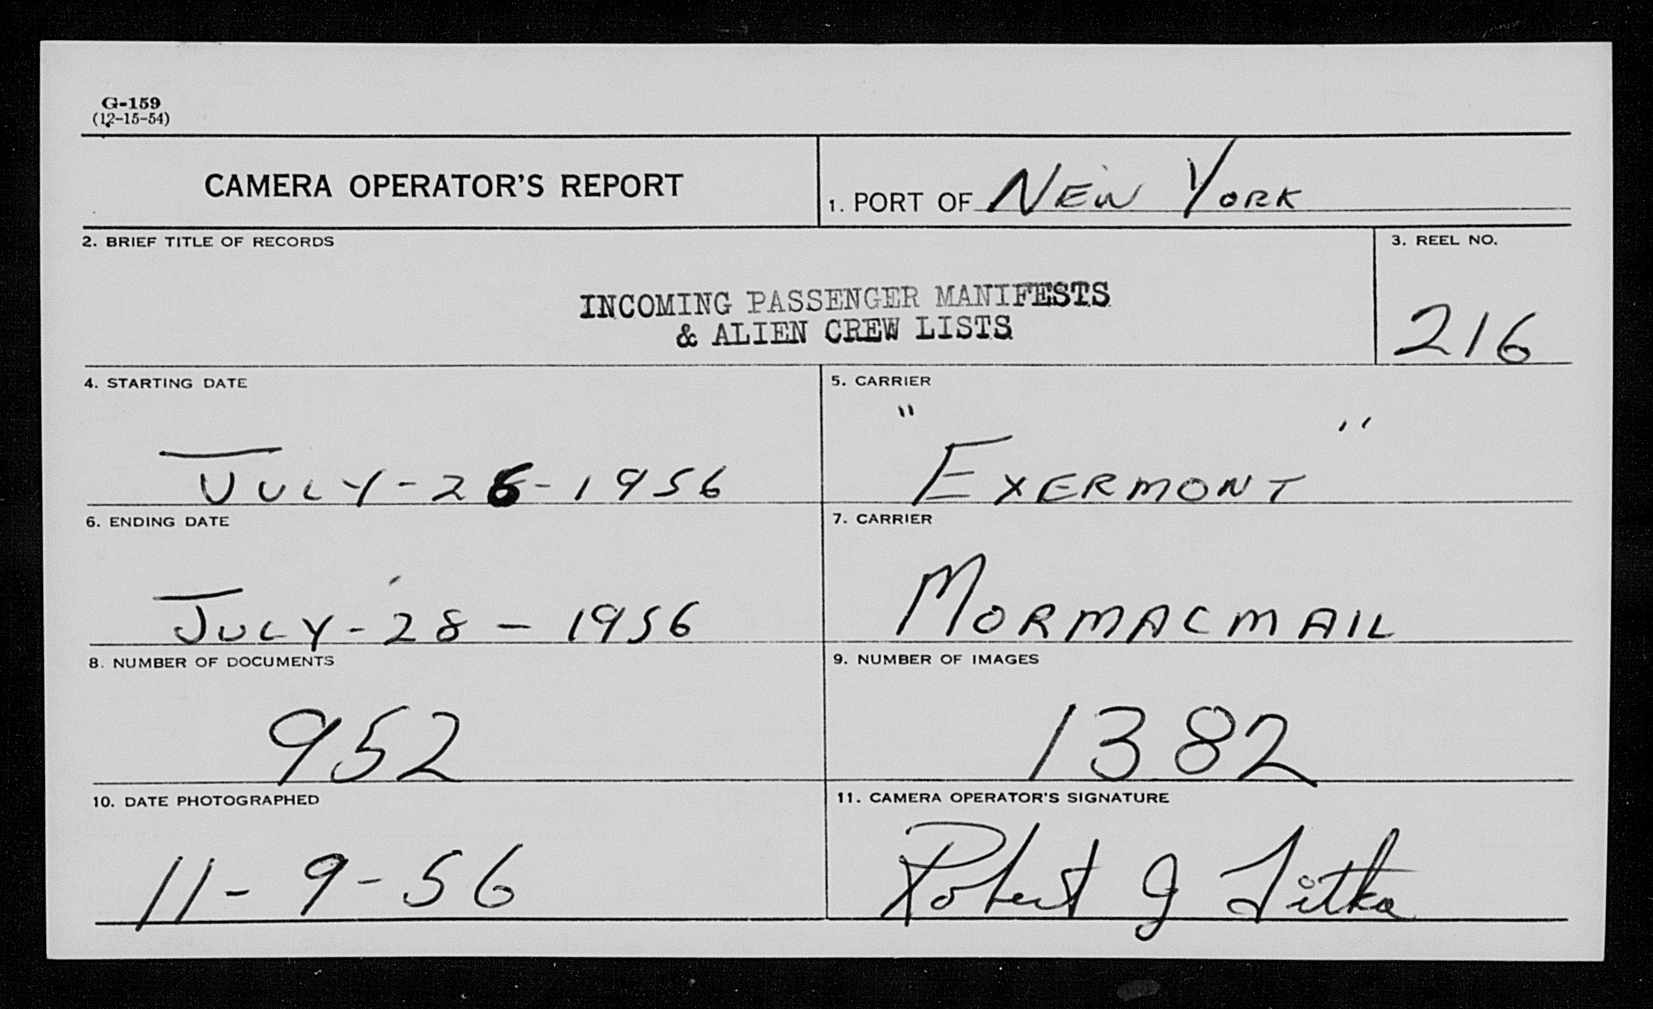 G-159
(12-15-54)
CAMERA OPERATOR'S REPORT
1. PORT OF NEW YORK
2. BRIEF TITLE OF RECORDS
INCOMING PASSENGER MANIFESTS
& ALIEN CREW LISTS
3. REEL NO.
216
4. STARTING DATE
JULY-26-1956
5. CARRIER
"EXERMONT"
6. ENDING DATE
JULY-28-1956
7. CARRIER
MORMACMAIL
8. NUMBER OF DOCUMENTS
952
9. NUMBER OF IMAGES
1382
10. DATE PHOTOGRAPHED
11-9-56
11. CAMERA OPERATOR'S SIGNATURE
Robert J Litka